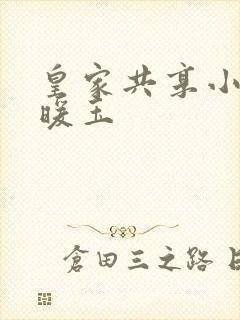 皇家共享小
暖玉
倉田三之路